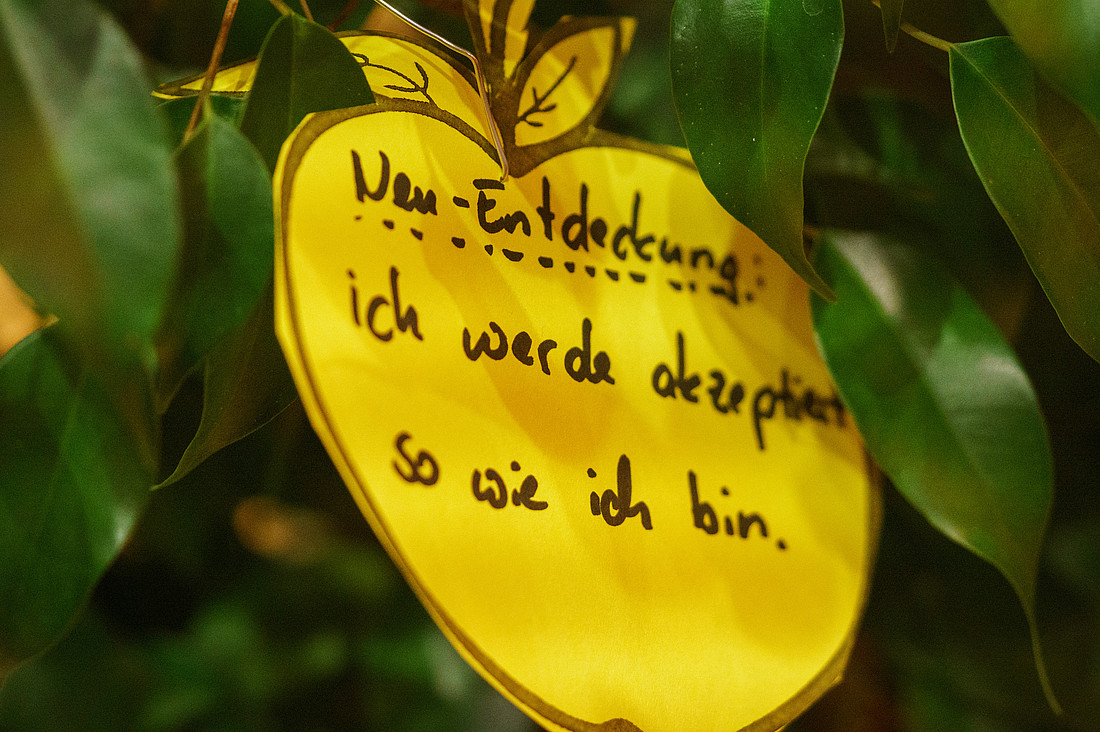 Neu-Entdeckung:
ich werde akzeptiert
so wie ich bin.